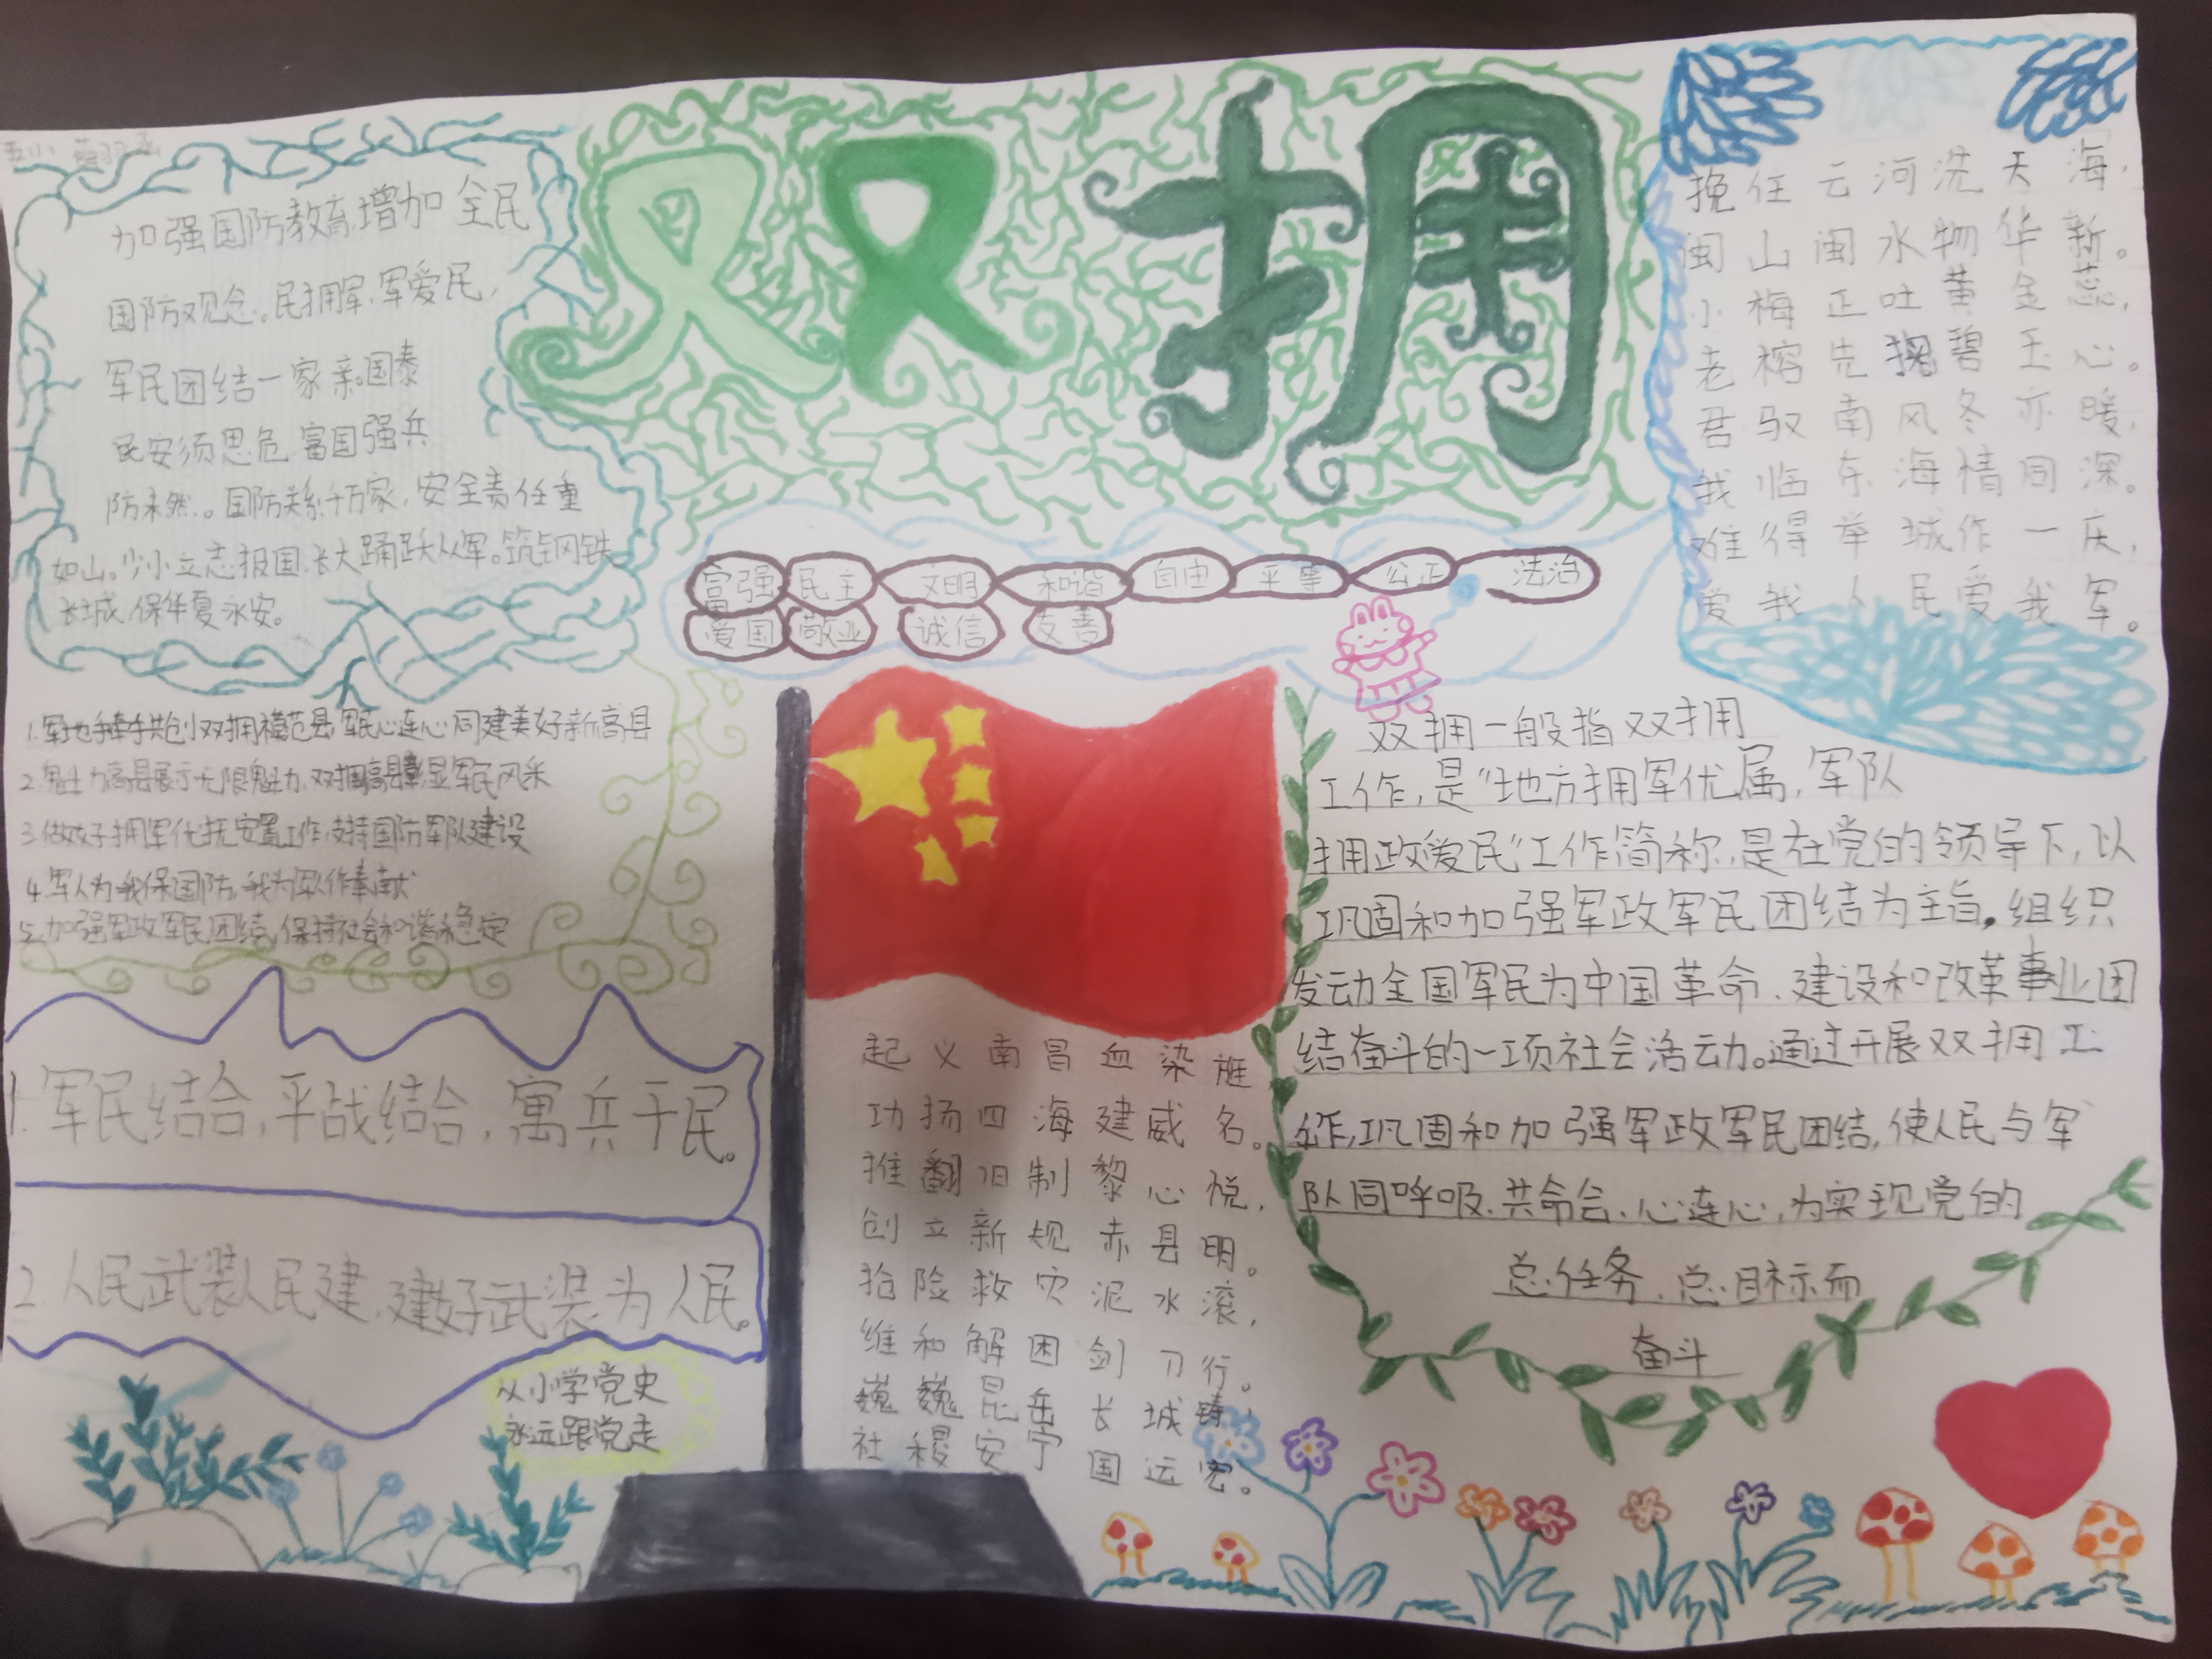 双拥
加强国防教育,增加全民
国防观念。民拥军,军爱民,
军民团结一家亲。国泰
民安须思危,富国强兵
防未然。国防关系千万家,安全责任重
如山。少小立志报国,长大踊跃从军。筑钢铁
长城,保华夏永安。
挽任云河洗天海,
闽山闽水物华新。
小梅正吐黄金蕊,
老榕先掬碧玉心。
君驭南风冬亦暖,
我临东海情同深。
难得举城作一庆,
爱我人民爱我军。
富强 民主 文明 和谐 自由 平等 公正 法治
爱国 敬业 诚信 友善
1.军地手牵手共创双拥模范县,军民心连心同建美好新高县
2.魅力高县展示无限魅力,双拥高县彰显军民风采
3.做好拥军优抚安置工作,支持国防军队建设
4.军人为我保国防,我为军人作奉献
5.加强军政军民团结,保持社会和谐稳定
1.军民结合,平战结合,寓兵于民。
2.人民武装人民建,建好武装为人民。
从小学党史
永远跟党走
起义南昌血染旌,
功扬四海建威名。
推翻旧制黎心悦,
创立新规赤县明。
抢险救灾泥水滚,
维和解困剑刀行。
巍巍昆岳长城铸,
社稷安宁国运宏。
双拥一般指双拥
工作,是“地方拥军优属,军队
拥政爱民”工作简称,是在党的领导下,以
巩固和加强军政军民团结为主旨,组织
发动全国军民为中国革命、建设和改革事业团
结奋斗的一项社会活动。通过开展双拥工
作,巩固和加强军政军民团结,使人民与军
队同呼吸、共命会、心连心,为实现党的
总任务、总目标而
奋斗